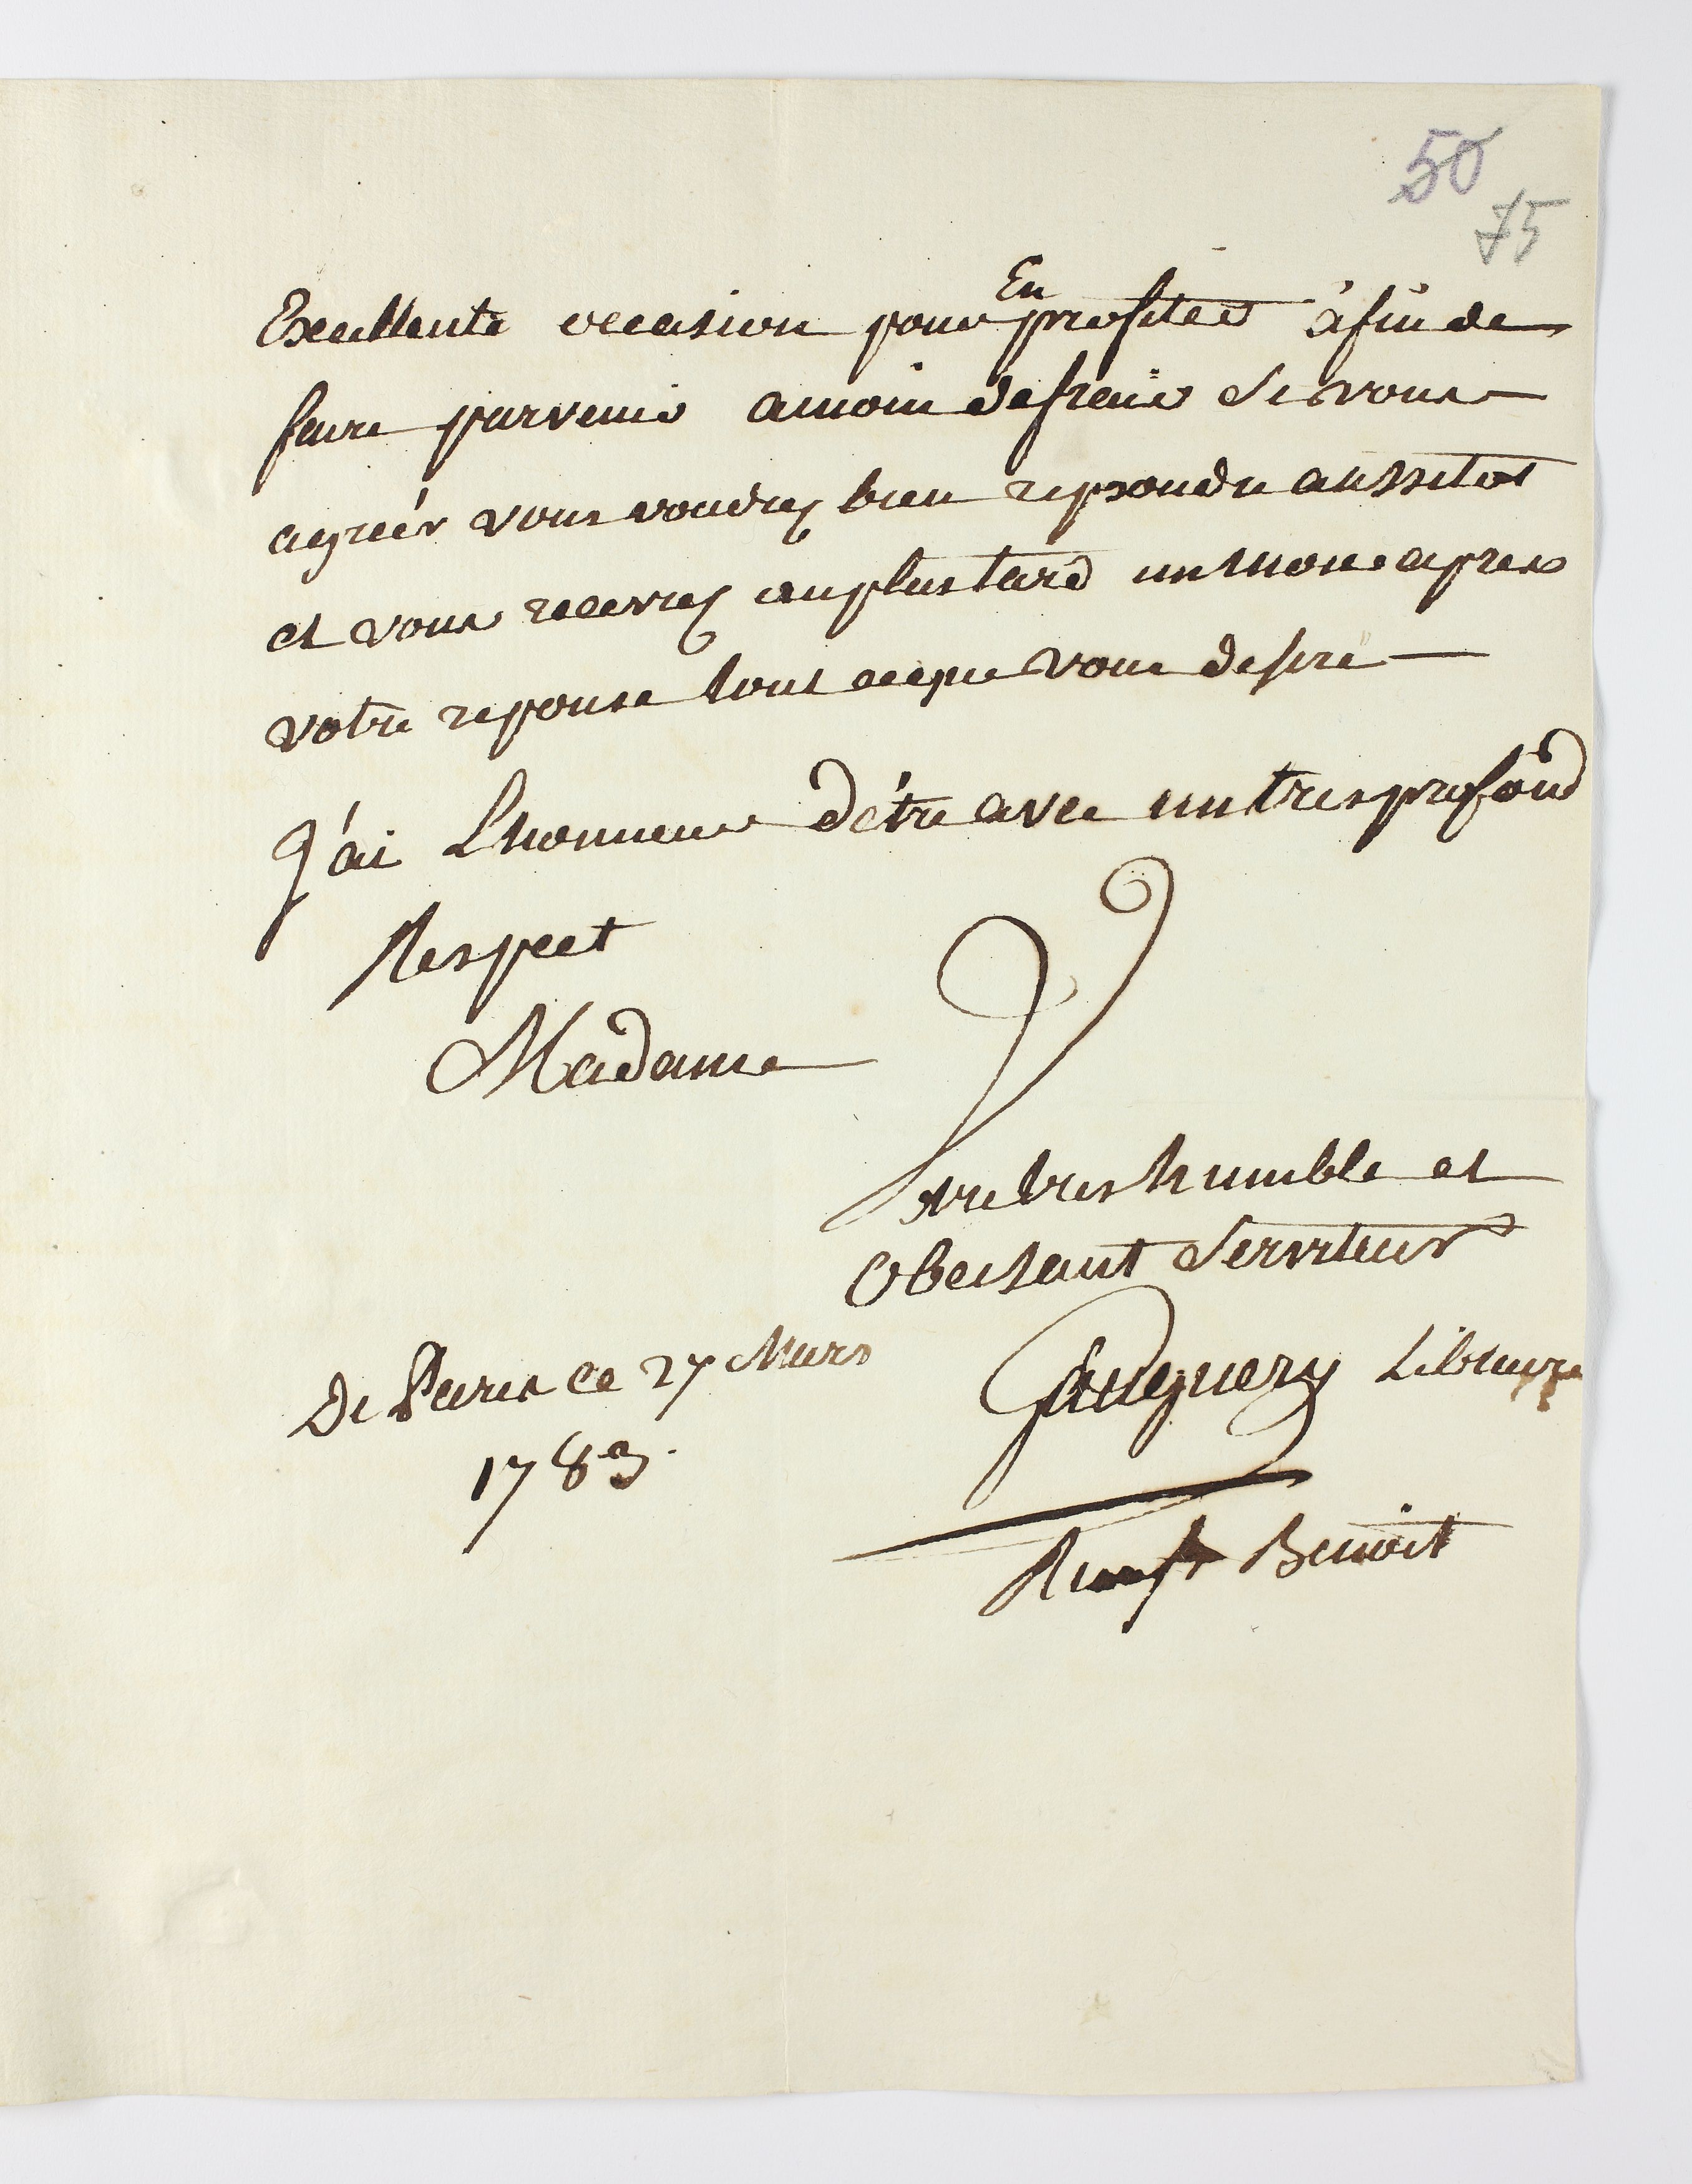 50
75
Excellente occasion pour En profiter àfin de
faire parvenir amoin defrais Si vous
agréér vous voudrez bien repondre aussitot
et vous recevrez auplustard un mois apres
votre reponse tout ceque vous desire
J'ai L'honneur d'étre avec un tres profond
Respect
Madame
Vtre tres humble et
Obeisant Serviteur
Gauguery Libraire
De Paris ce 27 Mars
1783.
Rue St Benoit